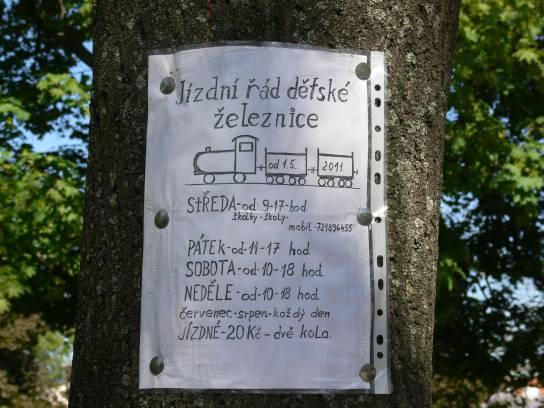 Jízdní řád dětské
železnice
od 1.5. 2011
STŘEDA-od 9-17-hod.
školky-školy-
mobil-721896455
PÁTEK-od-11-17 hod.
SOBOTA-od-10-18 hod
NEDĚLE-od-10-18 hod.
červenec-srpen-každý den
JÍZDNÉ-20 Kč-dvě kola.